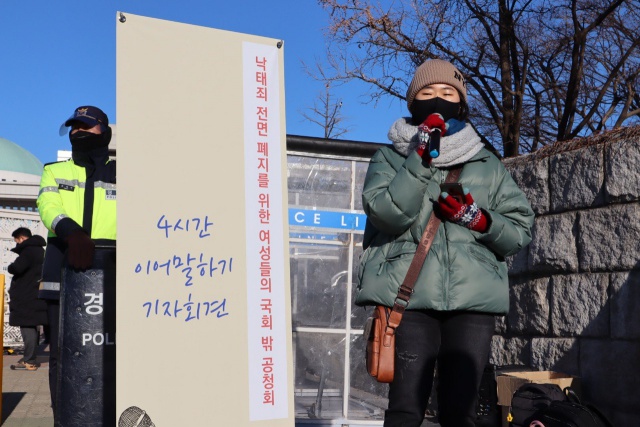 낙태죄 전면 폐지를 위한 여성들의 국회 밖 공청회
4시간
이어말하기
기자회견
경
POL
CE LI